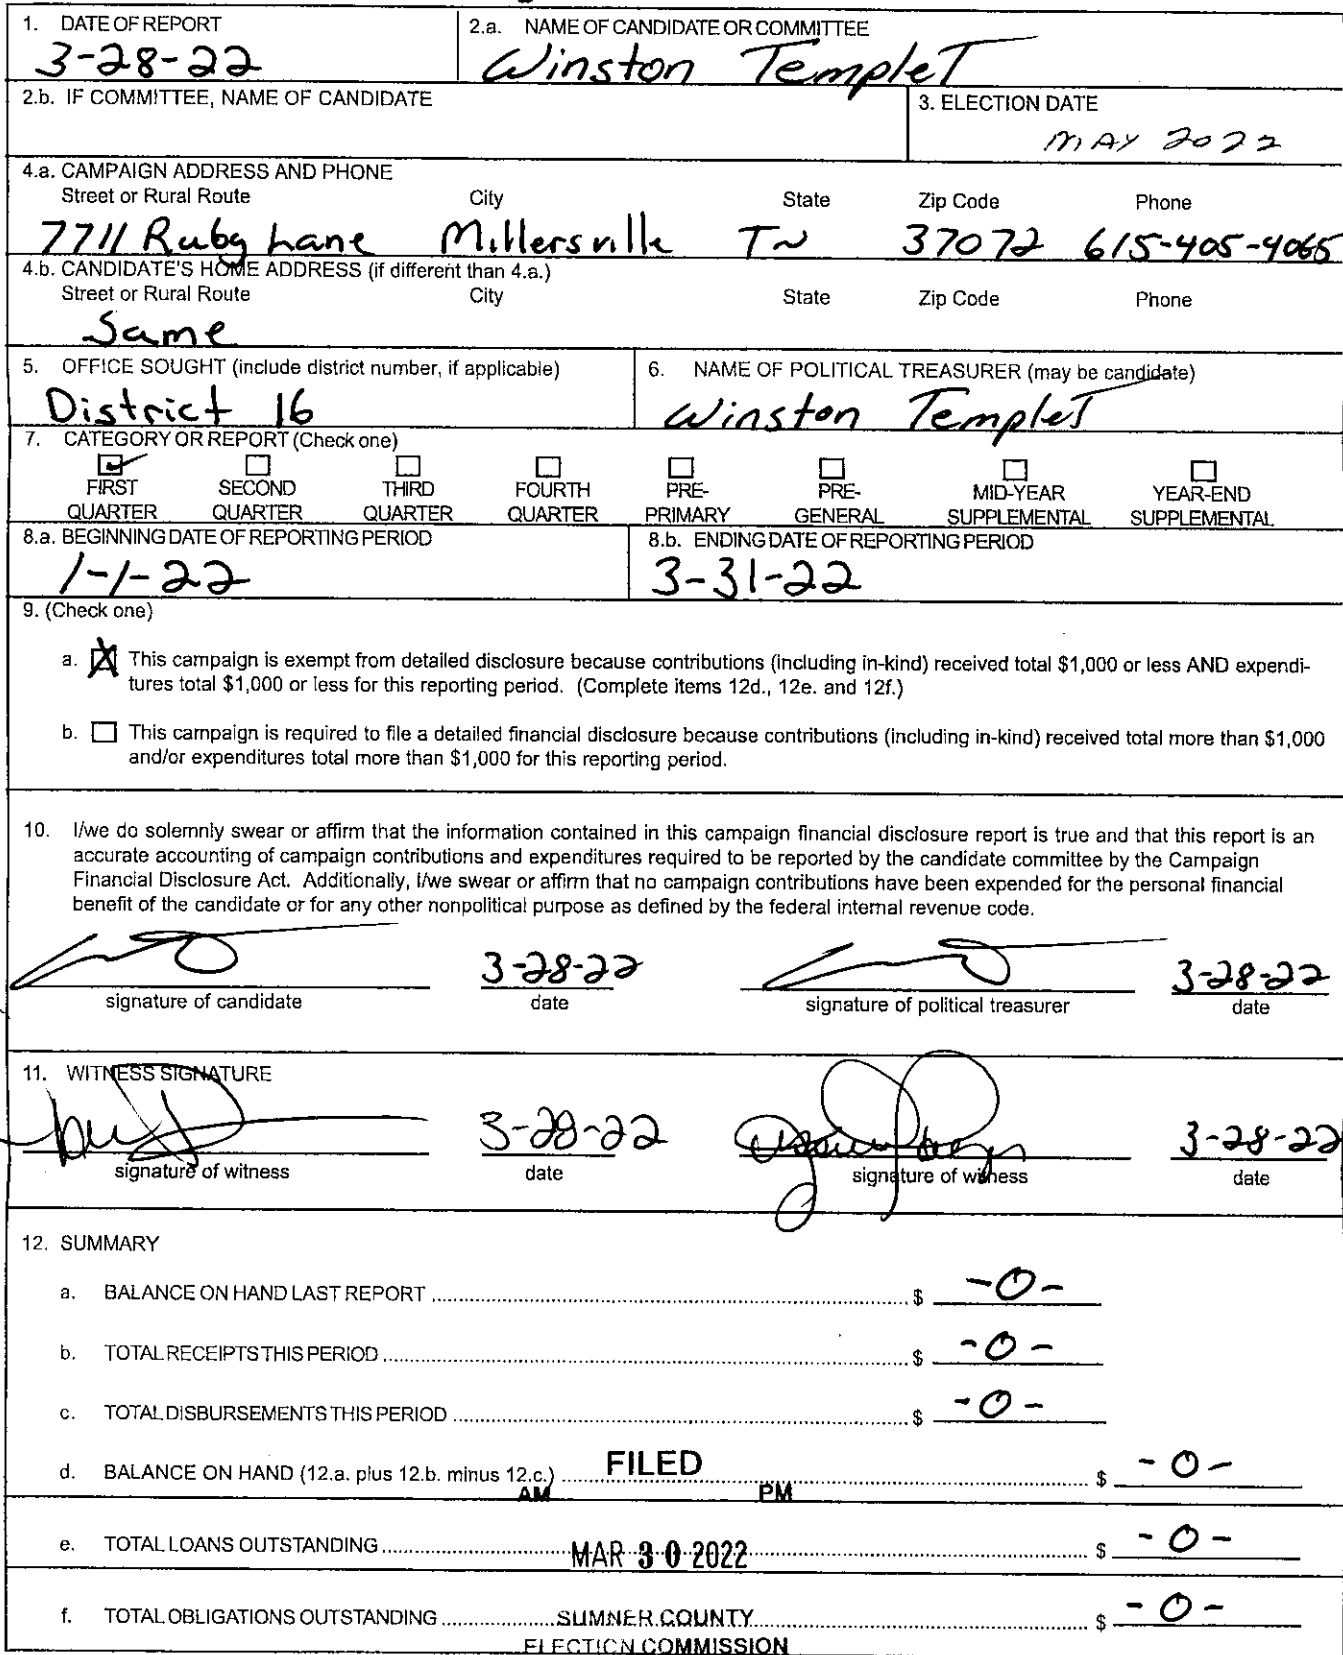 1. DATE OF REPORT
3-28-22
2.a. NAME OF CANDIDATE OR COMMITTEE
Winston Templet
2.b. IF COMMITTEE, NAME OF CANDIDATE
3. ELECTION DATE
MAY 2022
4.a. CAMPAIGN ADDRESS AND PHONE
Street or Rural Route City State Zip Code Phone
7711 Ruby Lane Millersville TN 37072 615-405-4065
4.b. CANDIDATE'S HOME ADDRESS (if different than 4.a.)
Street or Rural Route City State Zip Code Phone
Same
5. OFFICE SOUGHT (include district number, if applicable)
District 16
6. NAME OF POLITICAL TREASURER (may be candidate)
Winston Templet
7. CATEGORY OR REPORT (Check one)
FIRST SECOND THIRD FOURTH PRE- PRE- MID-YEAR YEAR-END
QUARTER QUARTER QUARTER QUARTER PRIMARY GENERAL SUPPLEMENTAL SUPPLEMENTAL
8.a. BEGINNING DATE OF REPORTING PERIOD
1-1-22
8.b. ENDING DATE OF REPORTING PERIOD
3-31-22
9. (Check one)
a. This campaign is exempt from detailed disclosure because contributions (including in-kind) received total $1,000 or less AND expendi-
tures total $1,000 or less for this reporting period. (Complete items 12d., 12e. and 12f.)
b. This campaign is required to file a detailed financial disclosure because contributions (including in-kind) received total more than $1,000
and/or expenditures total more than $1,000 for this reporting period.
10. I/we do solemnly swear or affirm that the information contained in this campaign financial disclosure report is true and that this report is an
accurate accounting of campaign contributions and expenditures required to be reported by the candidate committee by the Campaign
Financial Disclosure Act. Additionally, I/we swear or affirm that no campaign contributions have been expended for the personal financial
benefit of the candidate or for any other nonpolitical purpose as defined by the federal internal revenue code.
3-28-22 3-28-22
signature of candidate date signature of political treasurer date
11. WITNESS SIGNATURE
3-28-22 3-28-22
signature of witness date signature of witness date
12. SUMMARY
a. BALANCE ON HAND LAST REPORT $ -0-
b. TOTAL RECEIPTS THIS PERIOD $ -0-
c. TOTAL DISBURSEMENTS THIS PERIOD $ -0-
d. BALANCE ON HAND (12.a. plus 12.b. minus 12.c.) FILED $ -0-
AM PM
e. TOTAL LOANS OUTSTANDING MAR 30 2022 $ -0-
f. TOTAL OBLIGATIONS OUTSTANDING SUMNER COUNTY $ -0-
ELECTION COMMISSION